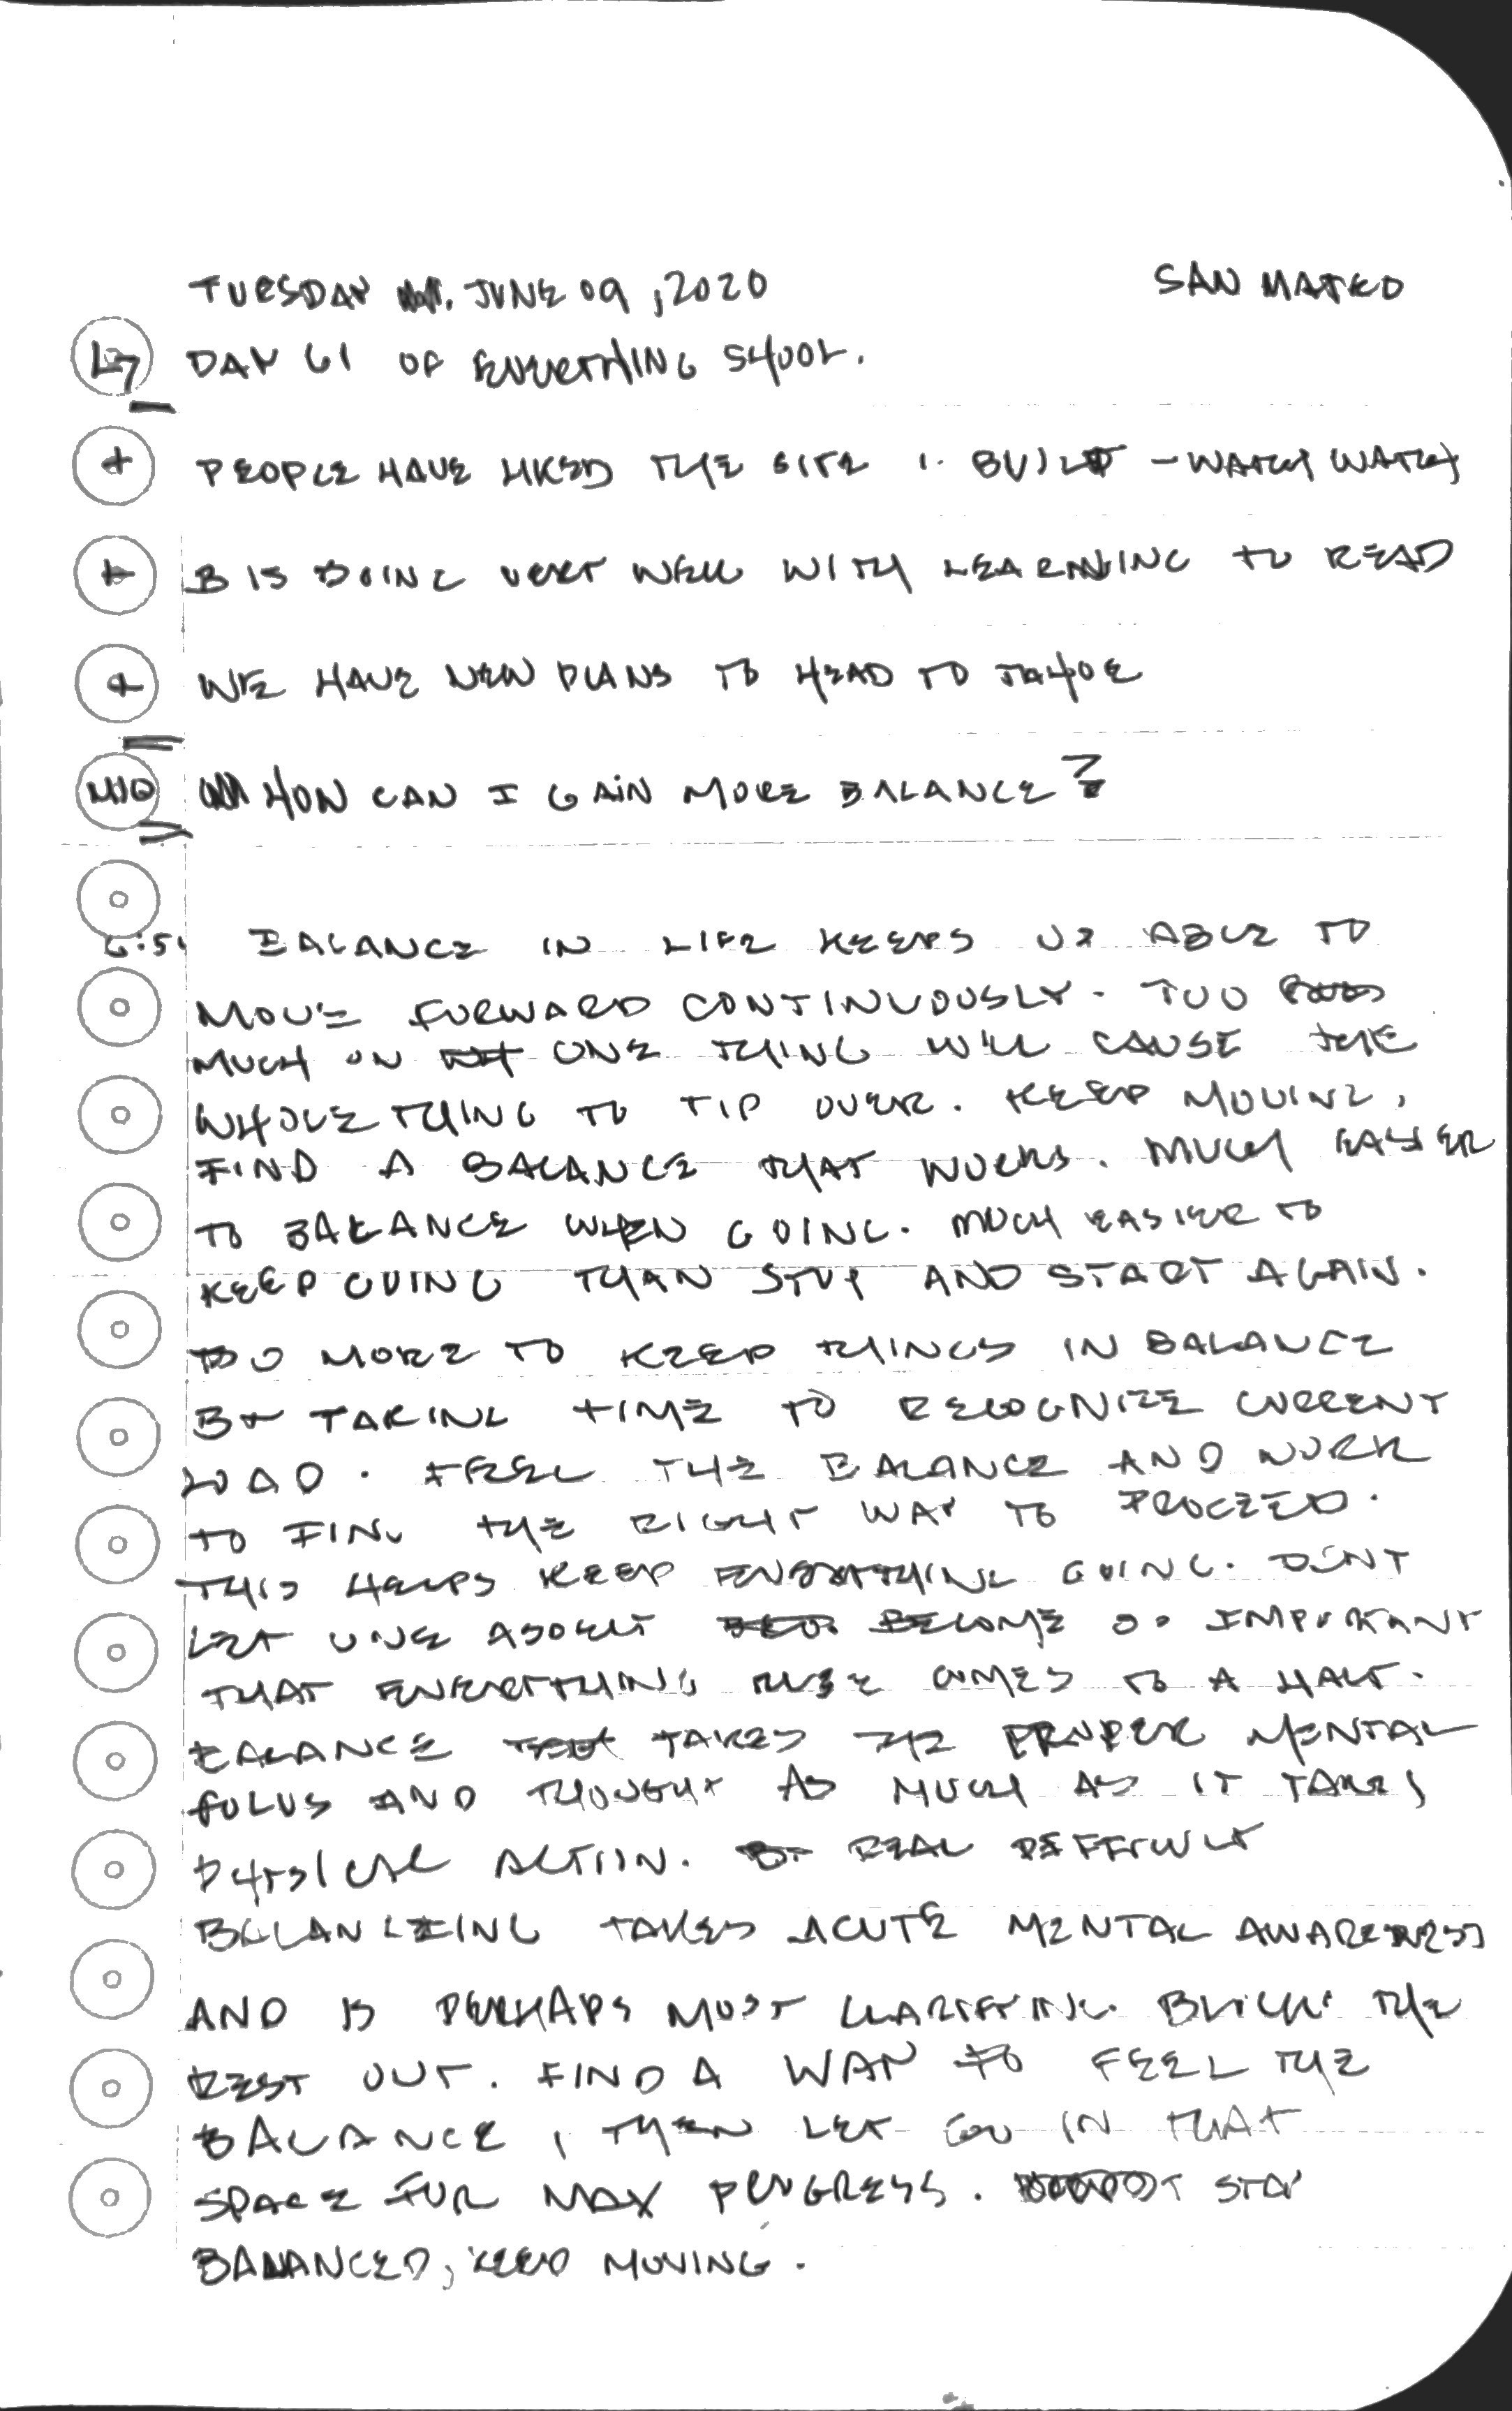 TUESDAY JUNE 09, 2020 SAN MATEO
L7 DAY 61 OF EVERYTHING SHOOL.
+ PEOPLE HAVE LIKED THE SITE I BUILT - WATCH WATCH
+ B IS DOING VERY WELL WITH LEARNING TO READ
+ WE HAVE NEW PLANS TO HEAD TO TAHOE
HOW CAN I GAIN MORE BALANCE?
BALANCE IN LIFE KEEPS US ABLE TO
MOVE FORWARD CONTINUOUSLY. TOO
MUCH ON ONE THING WILL CAUSE THE
WHOLE THING TO TIP OVER. KEEP MOVING,
FIND A BALANCE THAT WORKS. MUCH EASIER
TO BALANCE WHEN GOING. MUCH EASIER TO
KEEP GOING THAN STOP AND START AGAIN.
DO MORE TO KEEP THINGS IN BALANCE
BY TAKING TIME TO RECOGNIZE CURRENT
LOAD. FEEL THE BALANCE AND WORK
TO FIND THE RIGHT WAY TO PROCEED.
THIS HELPS KEEP EVERYTHING GOING. DON'T
LET ONE ASPECT BECOME SO IMPORTANT
THAT EVERYTHING ELSE COMES TO A HALT.
BALANCE TAKES THE PROPER MENTAL
FOCUS AND THOUGHT AS MUCH AS IT TAKES
PHYSICAL ACTION. REAL DIFFICULT
BALANCEING TAKES ACUTE MENTAL AWARENESS
AND IS PERHAPS MOST CLARIFYING. BLOCK THE
REST OUT. FIND A WAY TO FEEL THE
BALANCE, THEN LET GO IN THAT
SPACE FOR MAX PROGRESS. STAY
BALANCED, KEEP MOVING.